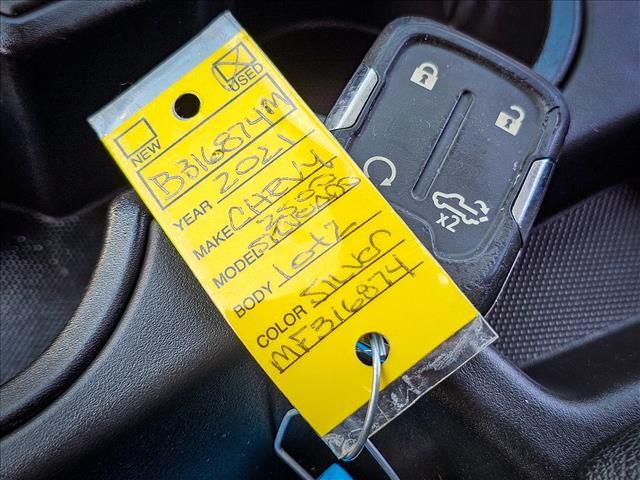 USED
NEW
B316874M
YEAR 2021
MAKE CHEVY
2500
MODEL SILVERADO
BODY
COLOR SILVER
MF316874
x2